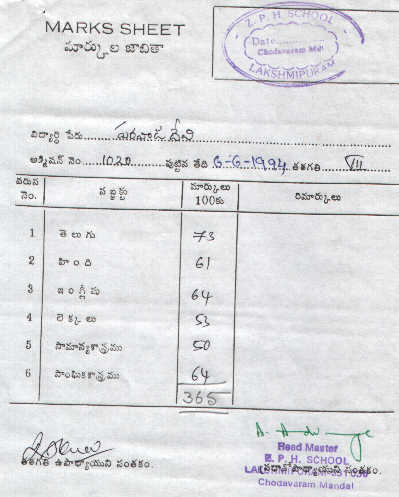 MARKS SHEET
మార్కుల జాబితా
Z. P. H. SCHOOL
Date
Chodavaram Mdl
LAKSHMIPURAM
విద్యార్థి పేరు దేవి
అడ్మిషన్ నెం. 1020 పుట్టిన తేది 6-6-1994 తరగతి VII
వరుస నెం. సబ్జక్టు మార్కులు 100కు రిమార్కులు
1 తెలుగు 73
2 హింది 61
3 ఇంగ్లీషు 64
4 లెక్కలు 53
5 సామాన్యశాస్త్రము 50
6 సాంఘికశాస్త్రము 64
365
Head Master
Z. P. H. SCHOOL
LAKSHMIPURAM
తరగతి ఉపాధ్యాయుని సంతకం. ప్రధానోపాధ్యాయుని సంతకం.
Chodavaram Mandal